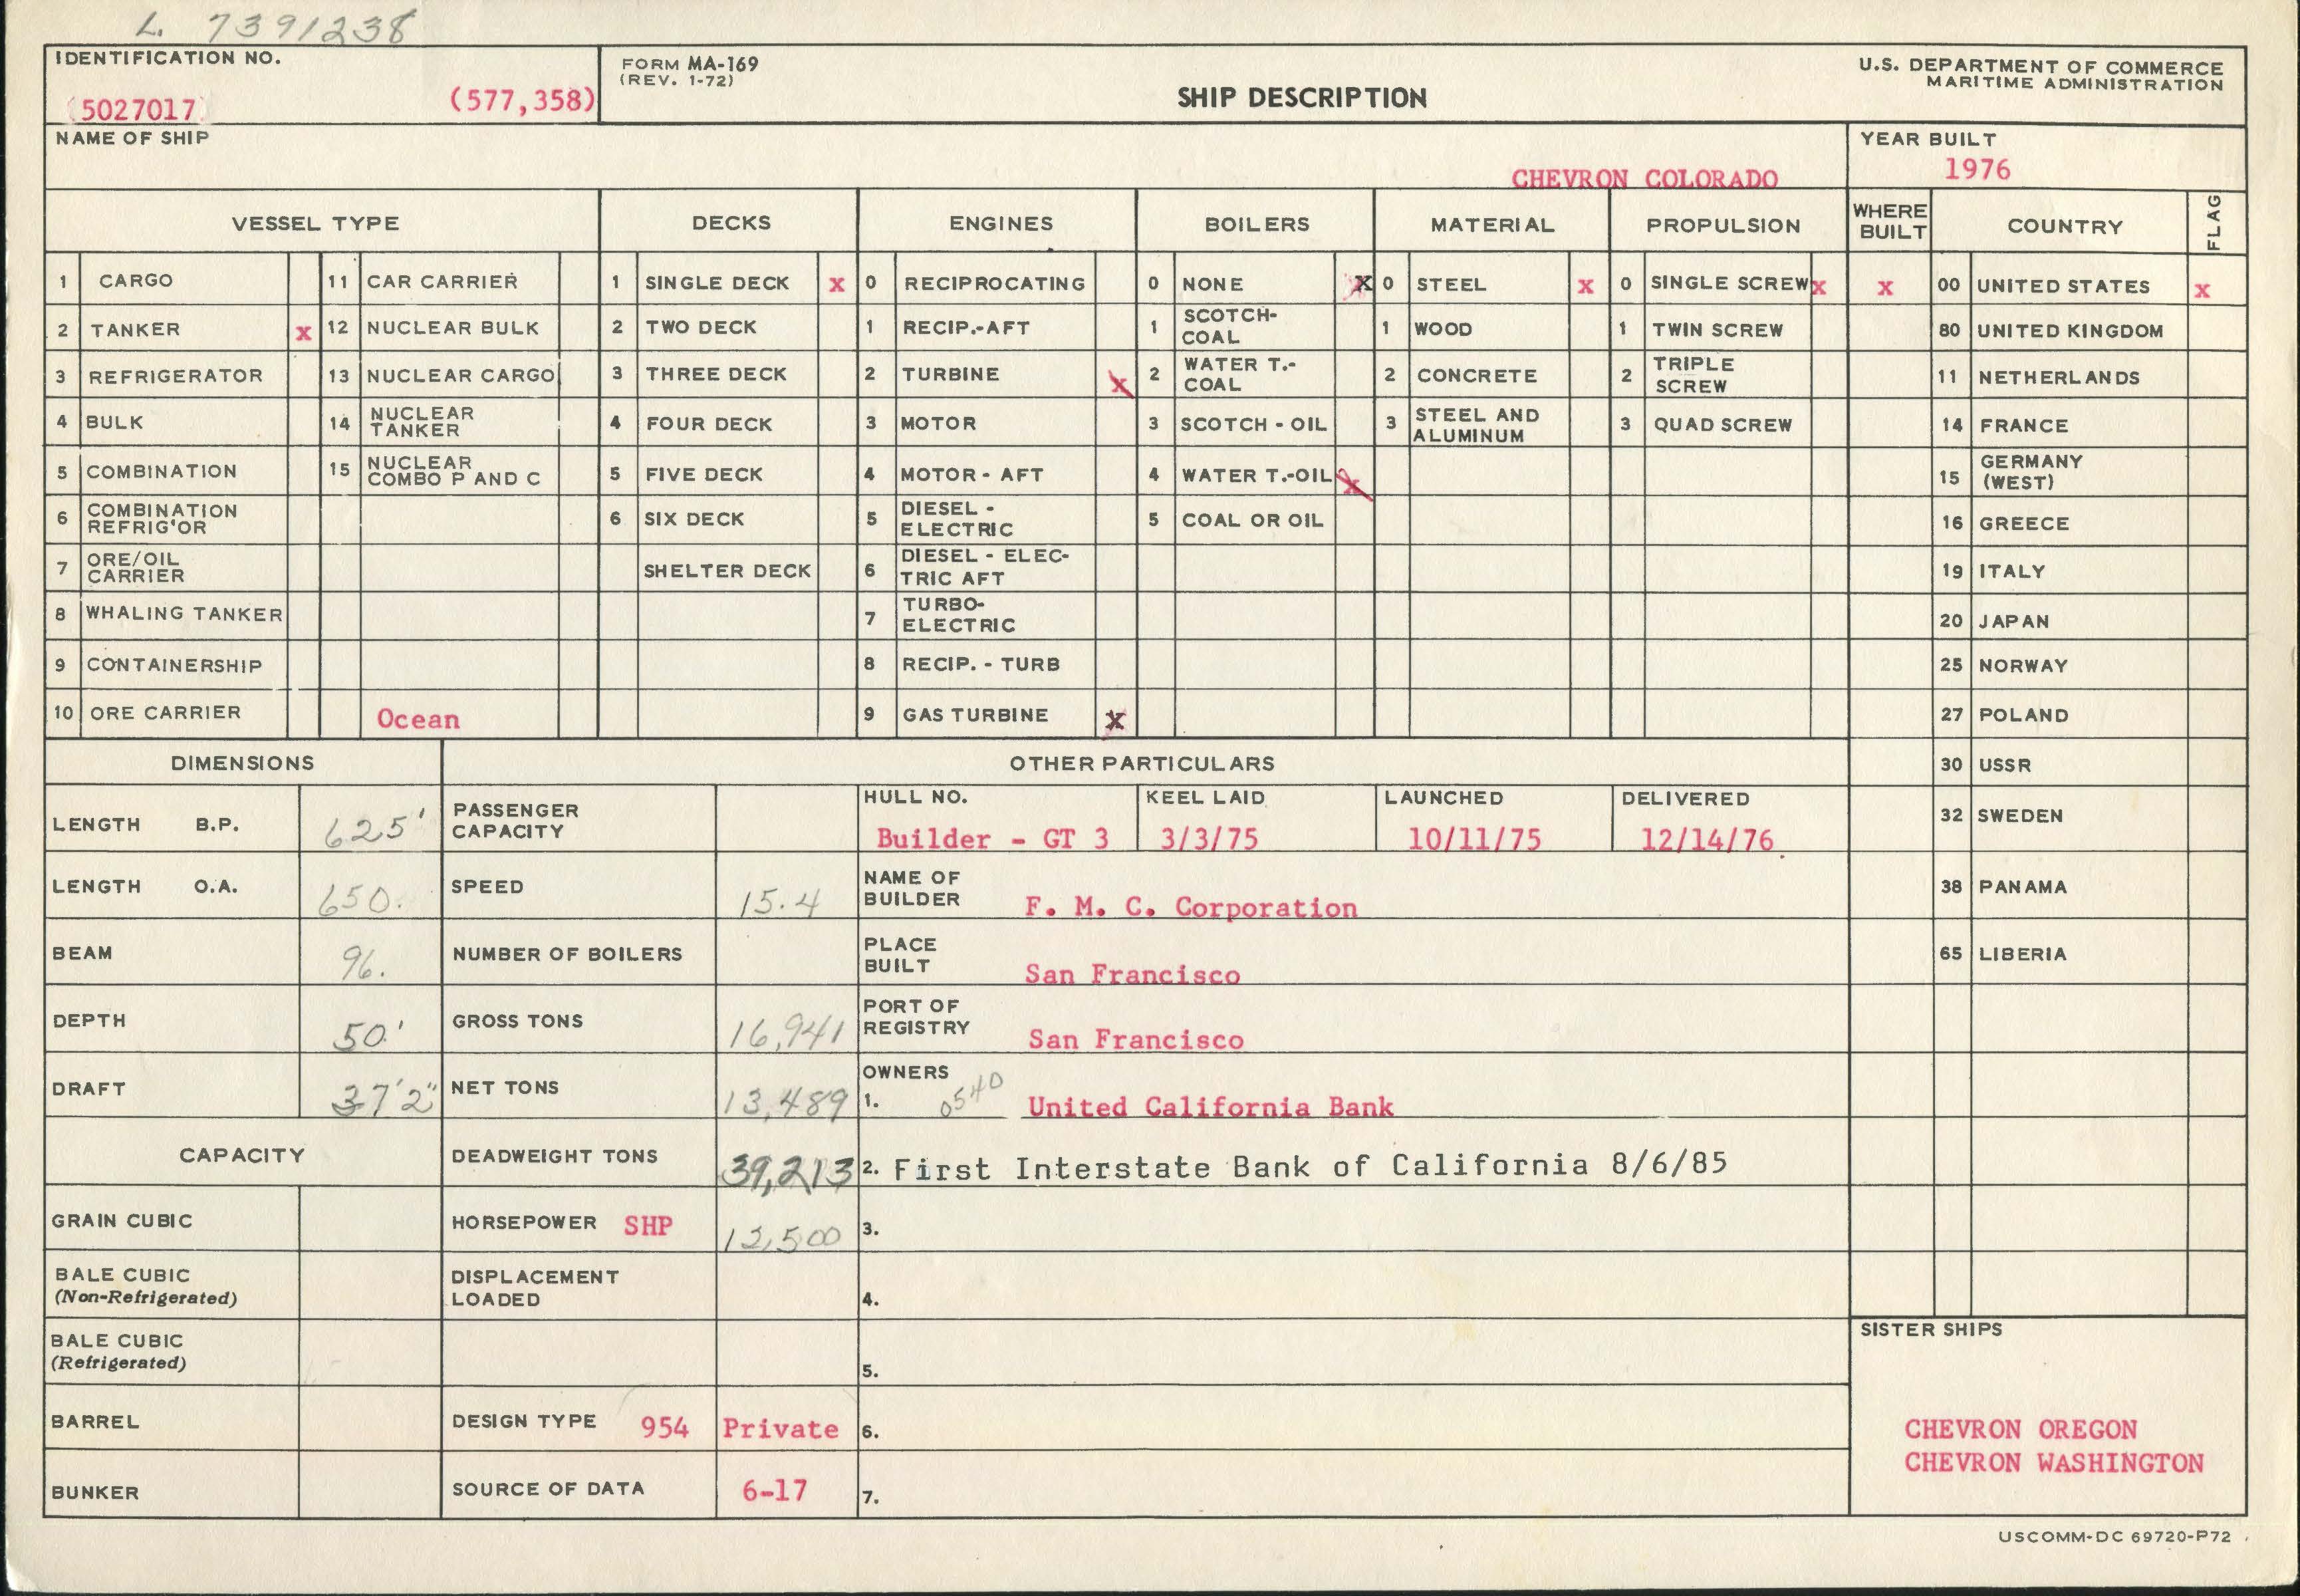 L. 7391238
IDENTIFICATION NO.
(5027017) (577,358)
FORM MA-169
(REV. 1-72)
SHIP DESCRIPTION
U.S. DEPARTMENT OF COMMERCE
MARITIME ADMINISTRATION
NAME OF SHIP
CHEVRON COLORADO
YEAR BUILT
1976
VESSEL TYPE DECKS ENGINES BOILERS MATERIAL PROPULSION WHERE BUILT COUNTRY FLAG
1 CARGO 11 CAR CARRIER 1 SINGLE DECK x 0 RECIPROCATING 0 NONE x 0 STEEL x 0 SINGLE SCREW x x 00 UNITED STATES x
2 TANKER x 12 NUCLEAR BULK 2 TWO DECK 1 RECIP.-AFT 1 SCOTCH-COAL 1 WOOD 1 TWIN SCREW 80 UNITED KINGDOM
3 REFRIGERATOR 13 NUCLEAR CARGO 3 THREE DECK 2 TURBINE x 2 WATER T.-COAL 2 CONCRETE 2 TRIPLE SCREW 11 NETHERLANDS
4 BULK 14 NUCLEAR TANKER 4 FOUR DECK 3 MOTOR 3 SCOTCH - OIL 3 STEEL AND ALUMINUM 3 QUAD SCREW 14 FRANCE
5 COMBINATION 15 NUCLEAR COMBO P AND C 5 FIVE DECK 4 MOTOR - AFT 4 WATER T.-OIL x 15 GERMANY (WEST)
6 COMBINATION REFRIG'OR 6 SIX DECK 5 DIESEL - ELECTRIC 5 COAL OR OIL 16 GREECE
7 ORE/OIL CARRIER SHELTER DECK 6 DIESEL - ELEC-TRIC AFT 19 ITALY
8 WHALING TANKER 7 TURBO-ELECTRIC 20 JAPAN
9 CONTAINERSHIP 8 RECIP. - TURB 25 NORWAY
10 ORE CARRIER Ocean 9 GAS TURBINE x 27 POLAND
DIMENSIONS OTHER PARTICULARS 30 USSR
LENGTH B.P. 625' PASSENGER CAPACITY HULL NO. Builder - GT 3 KEEL LAID 3/3/75 LAUNCHED 10/11/75 DELIVERED 12/14/76 32 SWEDEN
LENGTH O.A. 650. SPEED 15.4 NAME OF BUILDER F. M. C. Corporation 38 PANAMA
BEAM 96. NUMBER OF BOILERS PLACE BUILT San Francisco 65 LIBERIA
DEPTH 50' GROSS TONS 16,941 PORT OF REGISTRY San Francisco
DRAFT 37'2" NET TONS 13,489 OWNERS 1. 0540 United California Bank
CAPACITY DEADWEIGHT TONS 39,213 2. First Interstate Bank of California 8/6/85
GRAIN CUBIC HORSEPOWER SHP 12,500 3.
BALE CUBIC (Non-Refrigerated) DISPLACEMENT LOADED 4.
BALE CUBIC (Refrigerated) 5.
SISTER SHIPS
BARREL DESIGN TYPE 954 Private 6.
CHEVRON OREGON
CHEVRON WASHINGTON
BUNKER SOURCE OF DATA 6-17 7.
USCOMM-DC 69720-P72